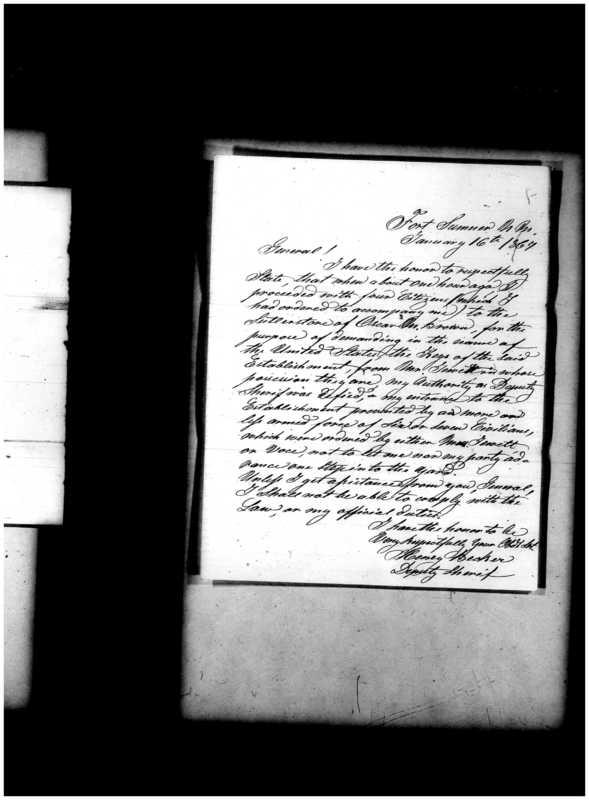 Fort Sumner N. M.
January 16th 1867
General!
I have the honor to respectfully
State, that when about one hour ago, I
proceeded with four Citizens (which I
had ordered to accompany me) to the
Sutlerstore of Oscar M. Brown, for the
purpose of demanding in the name of
the United States, the Keys of the said
Establishment, from Mr. Jewett in whose
possession they are, my Authority as Deputy
Sherif was defied, & my entrance to the
Establishment prevented by a more or
less armed force of Six or seven Civilians,
which were ordered by either Mr. Jewett
or Vose, not to let me nor my party ad-
vance one step into the yard.
Unless I get assistance from you, General,
I Shall not be able to comply with the
Law, or my official duties.
I have the honor to be
Very respectfully Your Obdt. St.
Henry Becker
Deputy Sherif